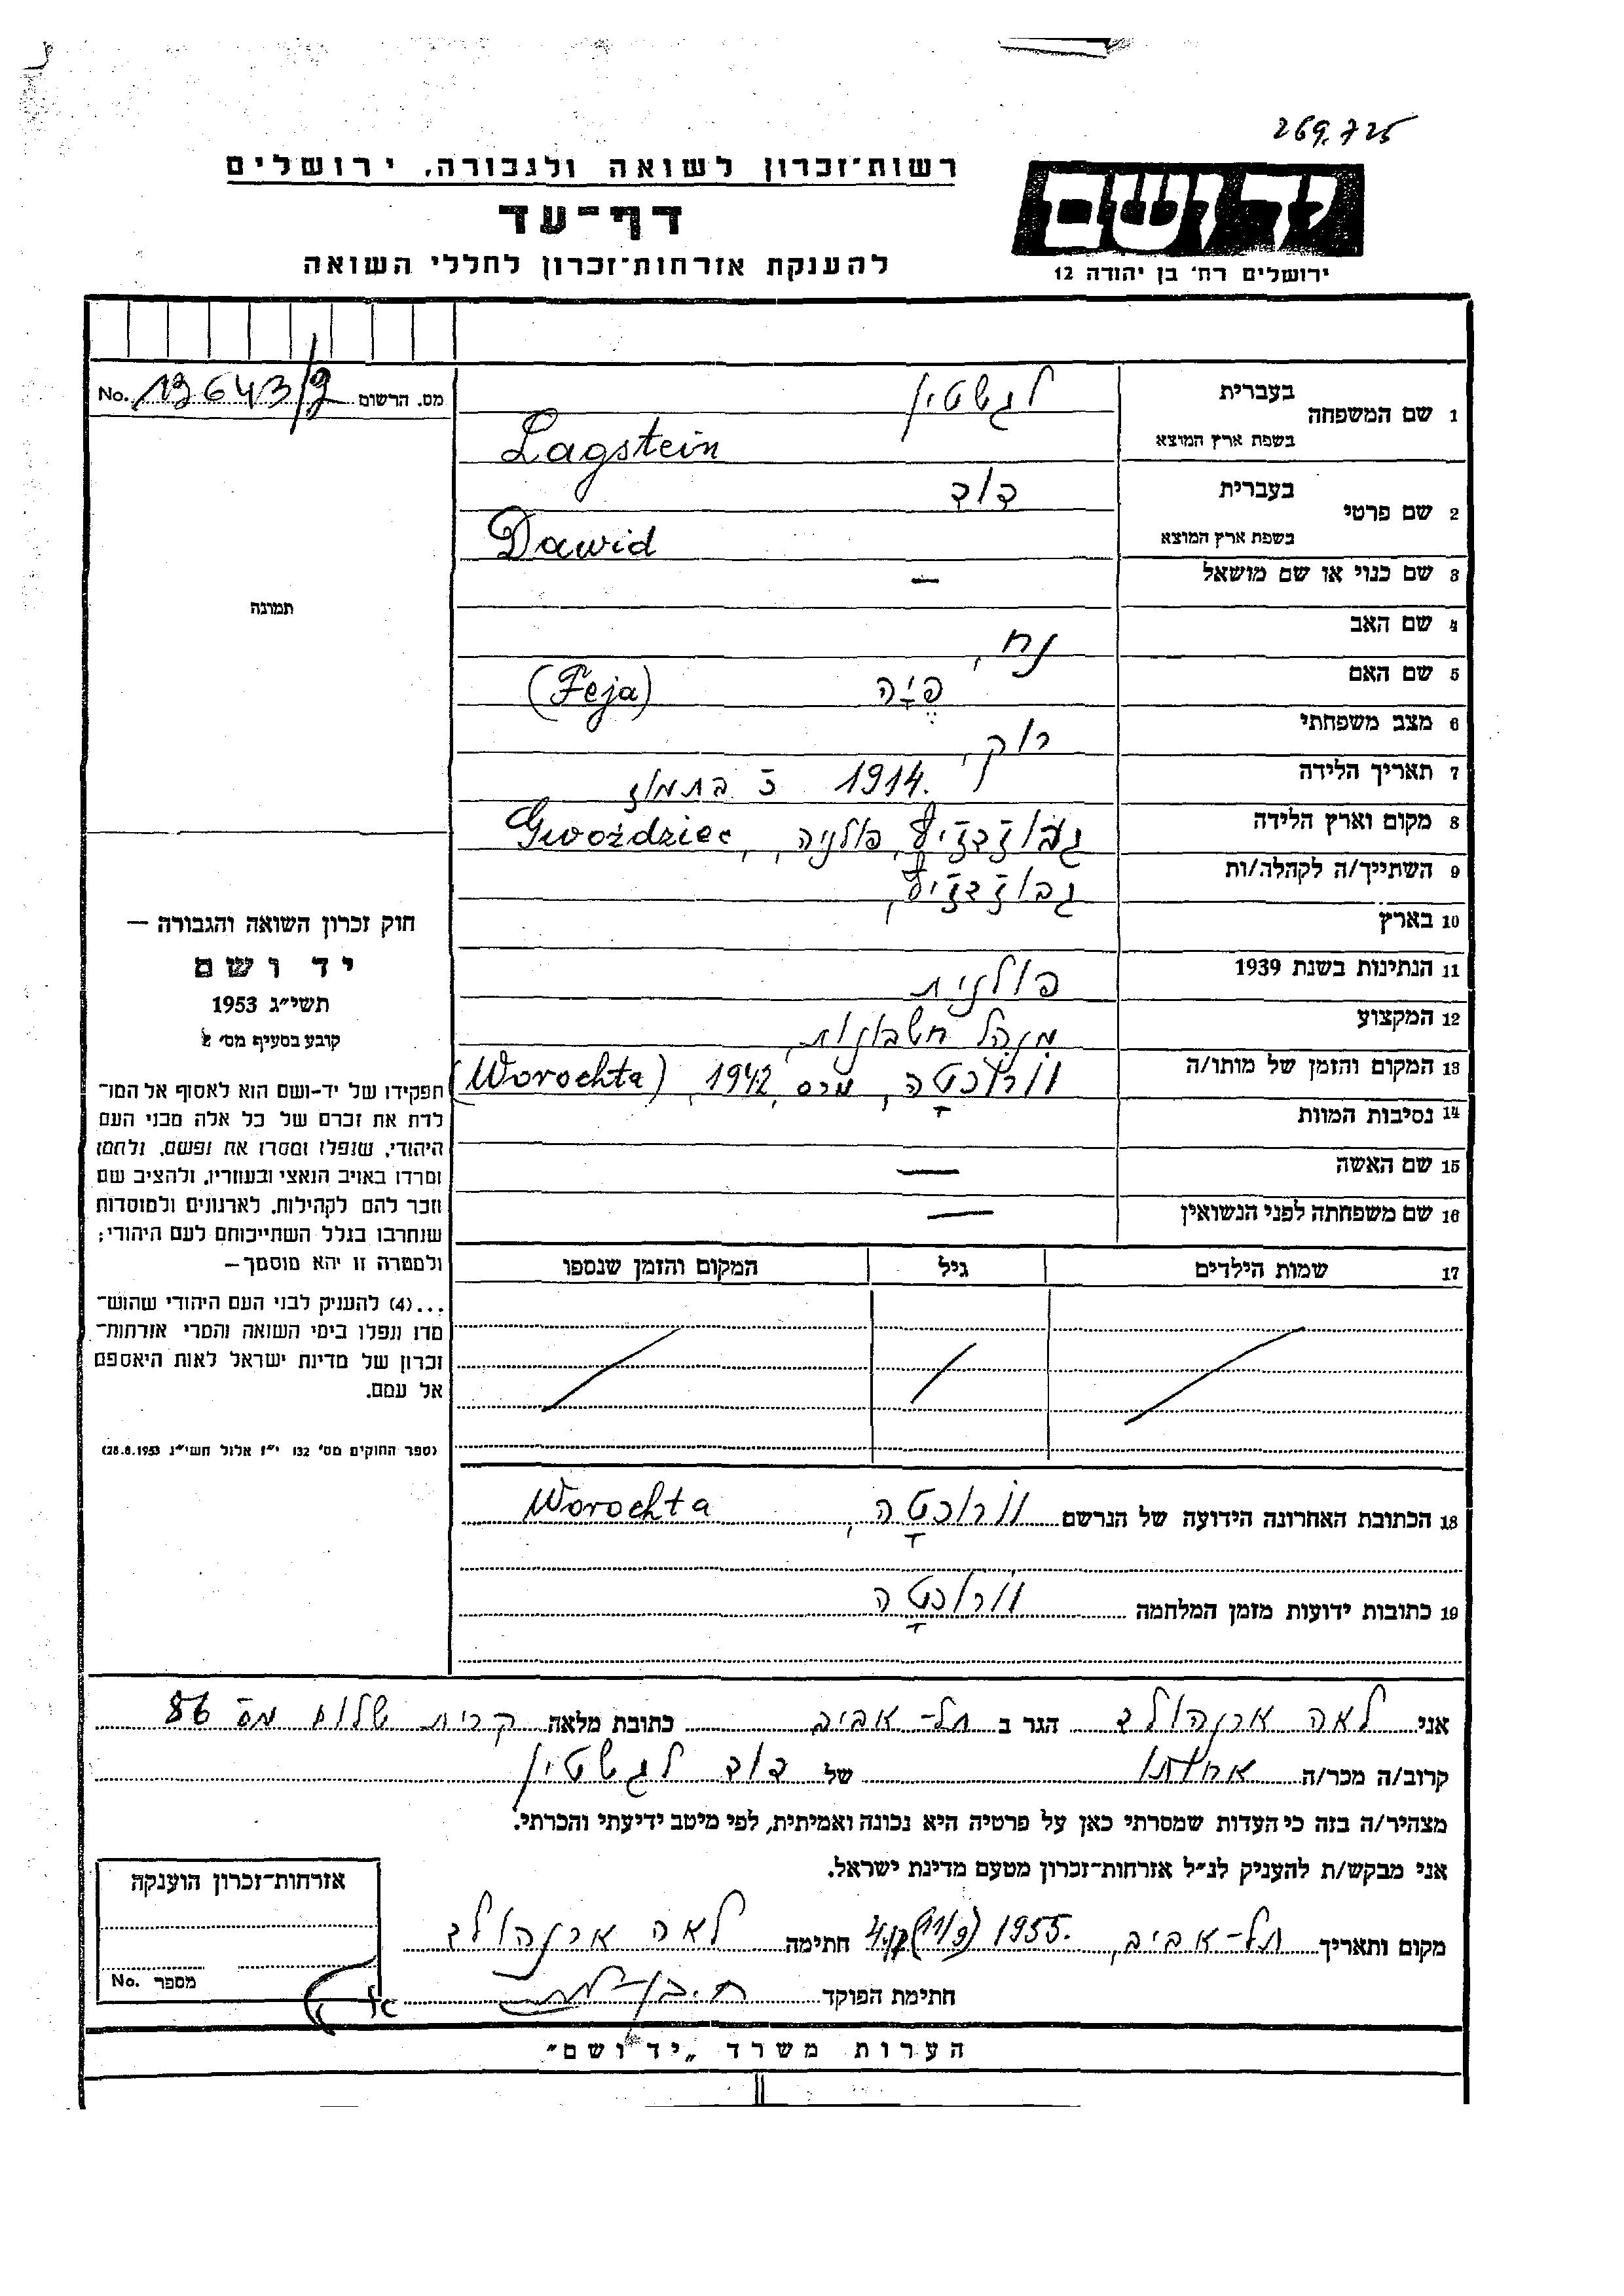 269.725
רשות־זכרון לשואה ולגבורה, ירושלים
יד ושם
דף־עד
להענקת אזרחות־זכרון לחללי השואה
ירושלים רח' בן יהודה 12
מס. הרשום 13643/9 No.
1 שם המשפחה בעברית לגשטיין
בשפת ארץ המוצא Lagstein
2 שם פרטי בעברית דוד
בשפת ארץ המוצא Dawid
3 שם כנוי או שם מושאל —
תמונה
4 שם האב נח,
5 שם האם פיה (Feja)
6 מצב משפחתי רוק,
7 תאריך הלידה 1914. ז בתמוז
8 מקום וארץ הלידה גבוזדזיץ, פולניה, Gwoździec,
9 השתייך/ה לקהלה/ות גבוזדזיץ,
10 בארץ
11 הנתינות בשנת 1939 פולנית
12 המקצוע מנהל חשבונות,
13 המקום והזמן של מותו/ה וורוכטה, מרס 1942, (Worochta)
14 נסיבות המוות
15 שם האשה —
16 שם משפחתה לפני הנשואין —
17 שמות הילדים גיל המקום והזמן שנספו
חוק זכרון השואה והגבורה —
יד ושם
תשי"ג 1953
קובע בסעיף מס' 2
תפקידו של יד-ושם הוא לאסוף אל המו־
לדת את זכרם של כל אלה מבני העם
היהודי, שנפלו ומסרו את נפשם, נלחמו
ומרדו באויב הנאצי ובעוזריו, ולהציב שם
וזכר להם לקהילות, לארגונים ולמוסדות
שנחרבו בגלל השתייכותם לעם היהודי;
ולמטרה זו יהא מוסמך—
...(4) להעניק לבני העם היהודי שהוש־
מדו ונפלו בימי השואה והמרי אזרחות־
זכרון של מדינת ישראל לאות היאספם
אל עמם.
(ספר החוקים מס' 132 י"ז אלול תשי"ג 28.8.1953)
18 הכתובת האחרונה הידועה של הנרשם וורוכטה, Worochta
19 כתובות ידועות מזמן המלחמה וורוכטה
אני לאה ארנהולד הגר ב תל-אביב כתובת מלאה קרית שלום מס 86
קרוב/ה מכר/ה אחותו של דוד לגשטיין
מצהיר/ה בזה כי העדות שמסרתי כאן על פרטיה היא נכונה ואמיתית, לפי מיטב ידיעתי והכרתי.
אני מבקש/ת להעניק לנ"ל אזרחות־זכרון מטעם מדינת ישראל.
מקום ותאריך תל-אביב, 1955. חתימה לאה ארנהולד
חתימת הפוקד
אזרחות־זכרון הוענקה
מספר No.
הערות משרד „יד ושם"